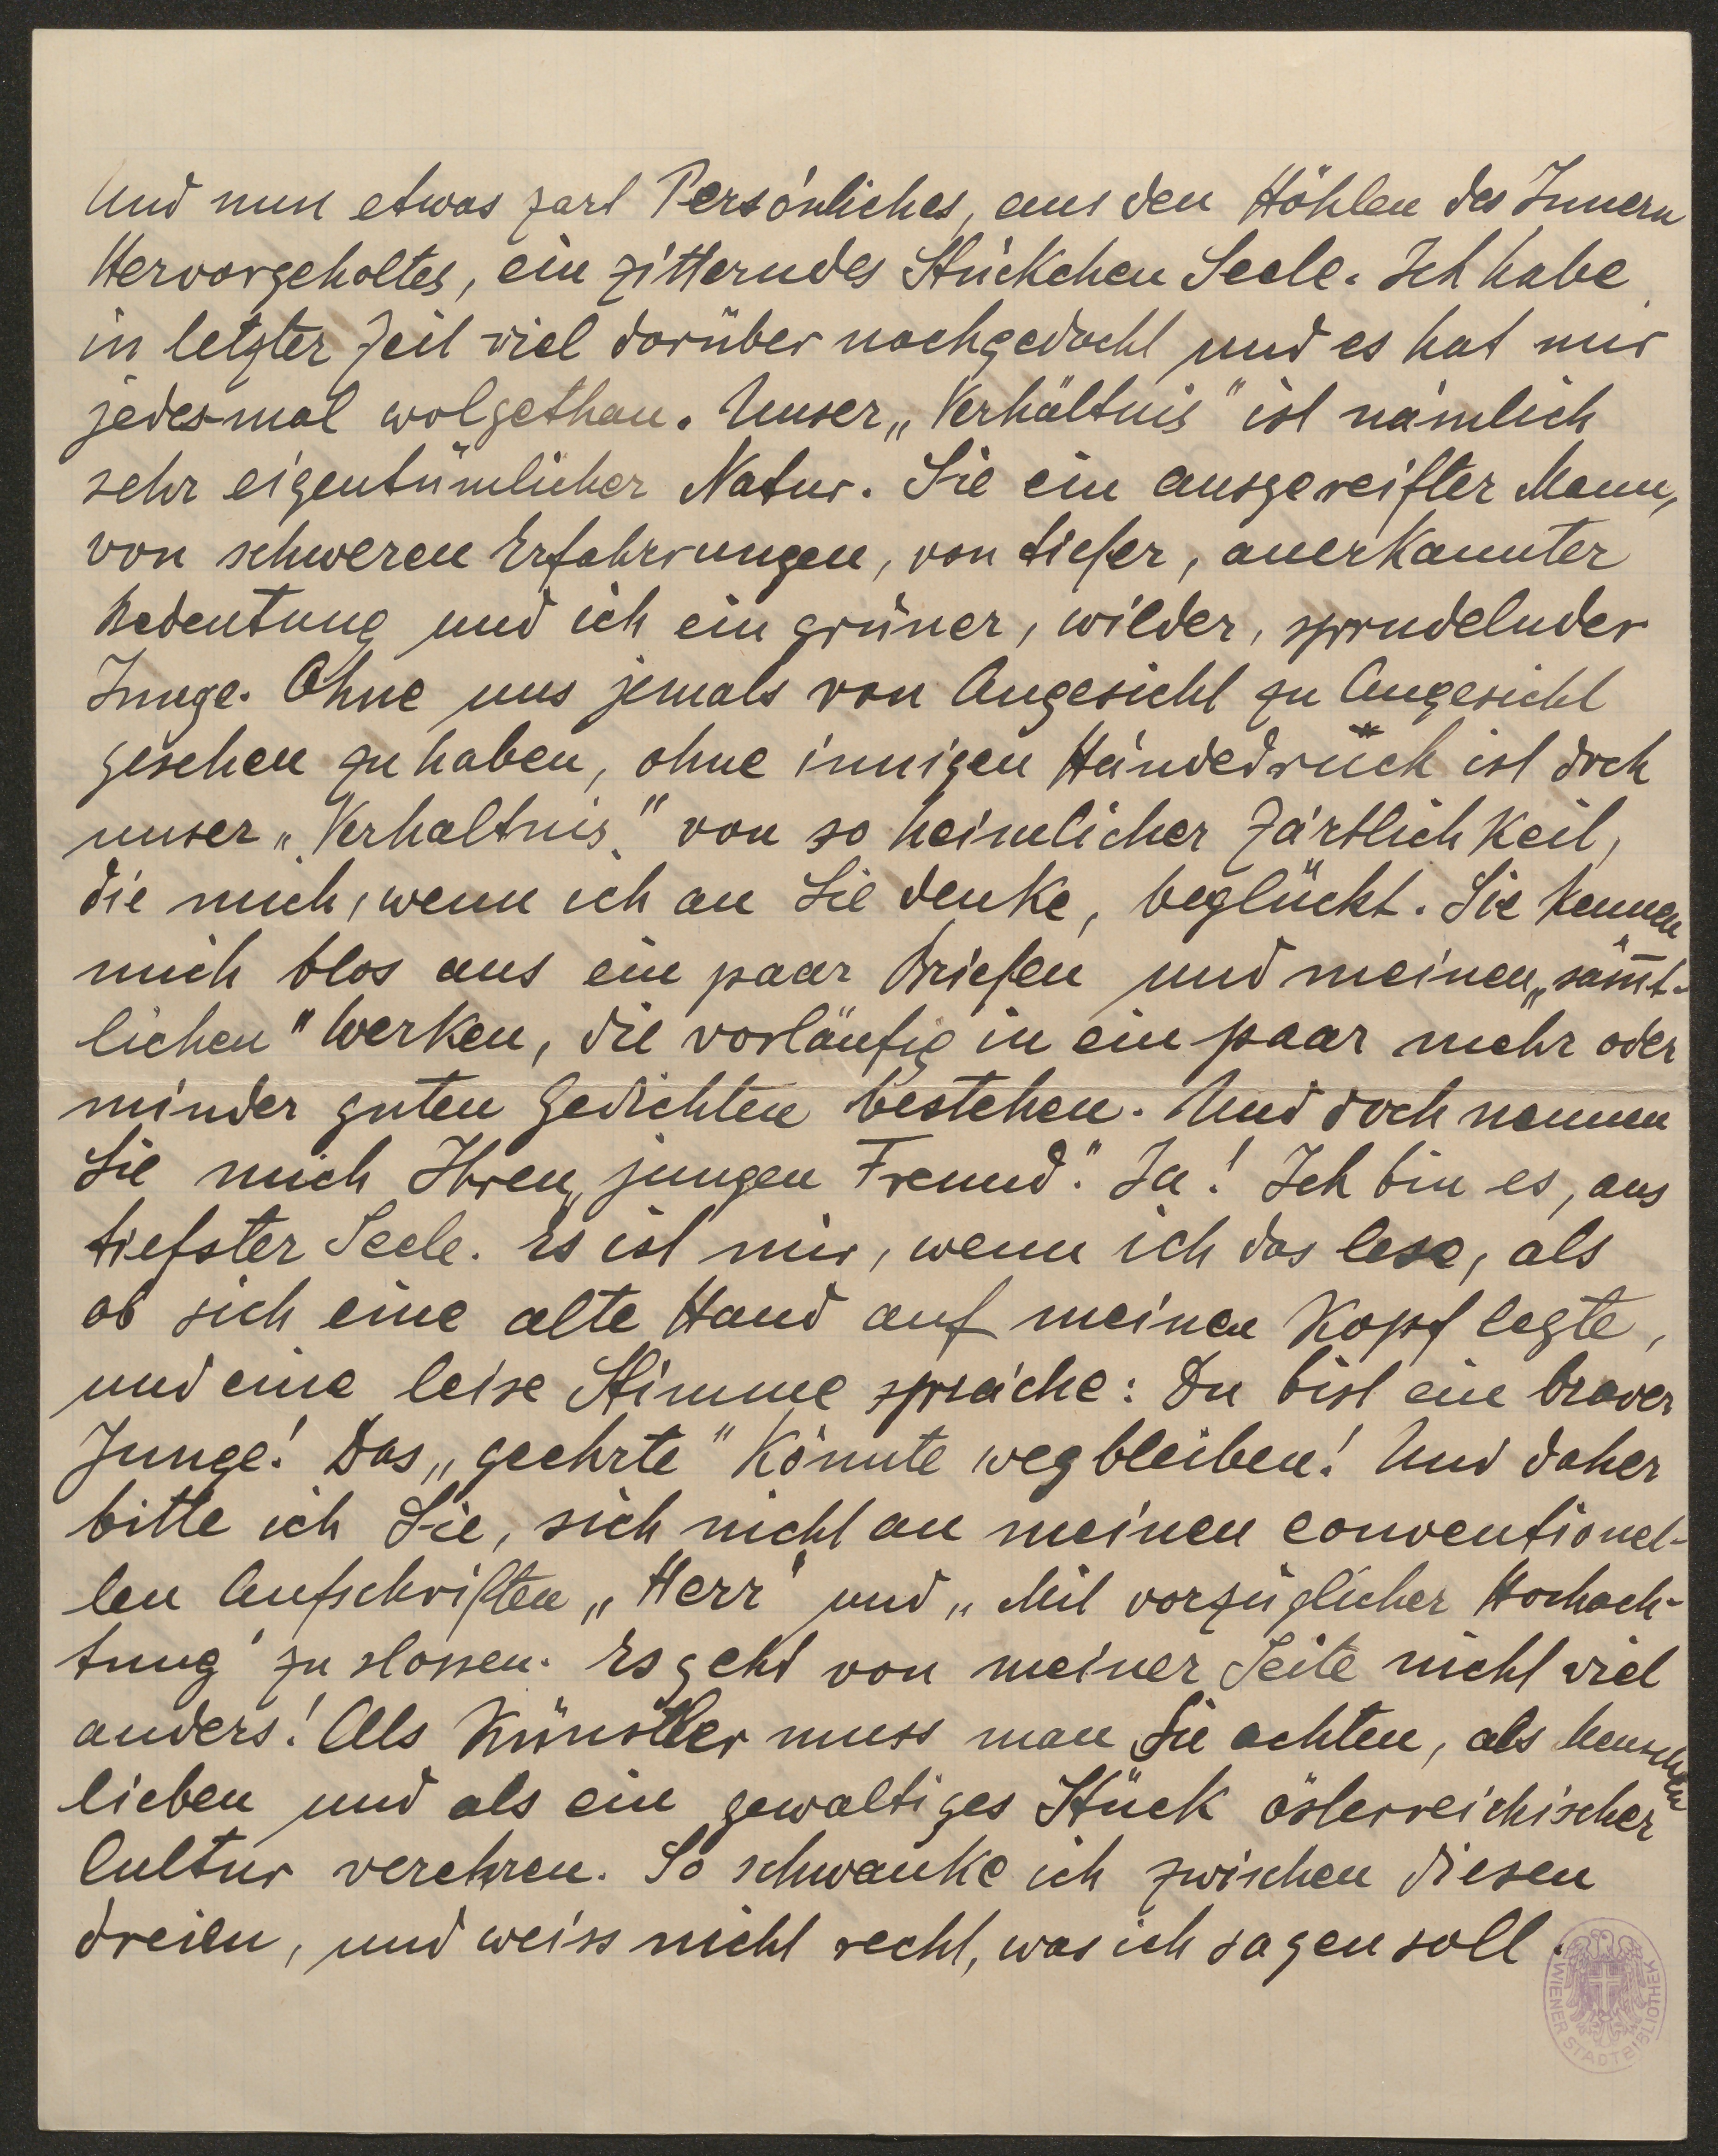 Und nun etwas zart Persönliches, aus den Höhlen des Innern
Hervorgeholtes, ein zitterndes Stückchen Seele. Ich habe
in letzter Zeit viel darüber nachgedacht und es hat mir
jedesmal wolgethan. Unser „Verhältnis" ist nämlich
sehr eigentümlicher Natur. Sie ein ausgereifter Mann,
von schweren Erfahrungen, von tiefer, anerkannter
Bedeutung und ich ein grüner, wilder, sprudelnder
Junge. Ohne uns jemals von Angesicht zu Angesicht
gesehen zu haben, ohne innigen Händedrück ist doch
unser „Verhaltnis" von so heimlicher Zärtlichkeit,
die mich, wenn ich an Sie denke, beglückt. Sie kennen
mich blos aus ein paar Briefen und meinen „säm̅t-
lichen" Werken, die vorläufig in ein paar mehr oder
minder guten Gedichten bestehen. Und doch nennen
Sie mich Ihren „jungen Freund". Ja! Ich bin es, aus
tiefster Seele. Es ist mir, wenn ich das lese, als
ob sich eine alte Hand auf meinen Kopf legte,
und eine leise Stimme spräche: Du bist ein braver
Junge! Das „geehrte" könnte wegbleiben! Und daher
bitte ich Sie, sich nicht an meinen conventionel-
len Aufschriften „Herr" und „Mit vorzüglicher Hochach-
tung" zu stossen. Es geht von meiner Seite nicht viel
anders! Als Künstler muss man Sie achten, als Menschen
lieben und als ein gewaltiges Stück österreichischer
Cultur verehren. So schwanke ich zwischen diesen
dreien, und weiss nicht recht, was ich sagen soll.
WIENER STADTBIBLIOTHEK